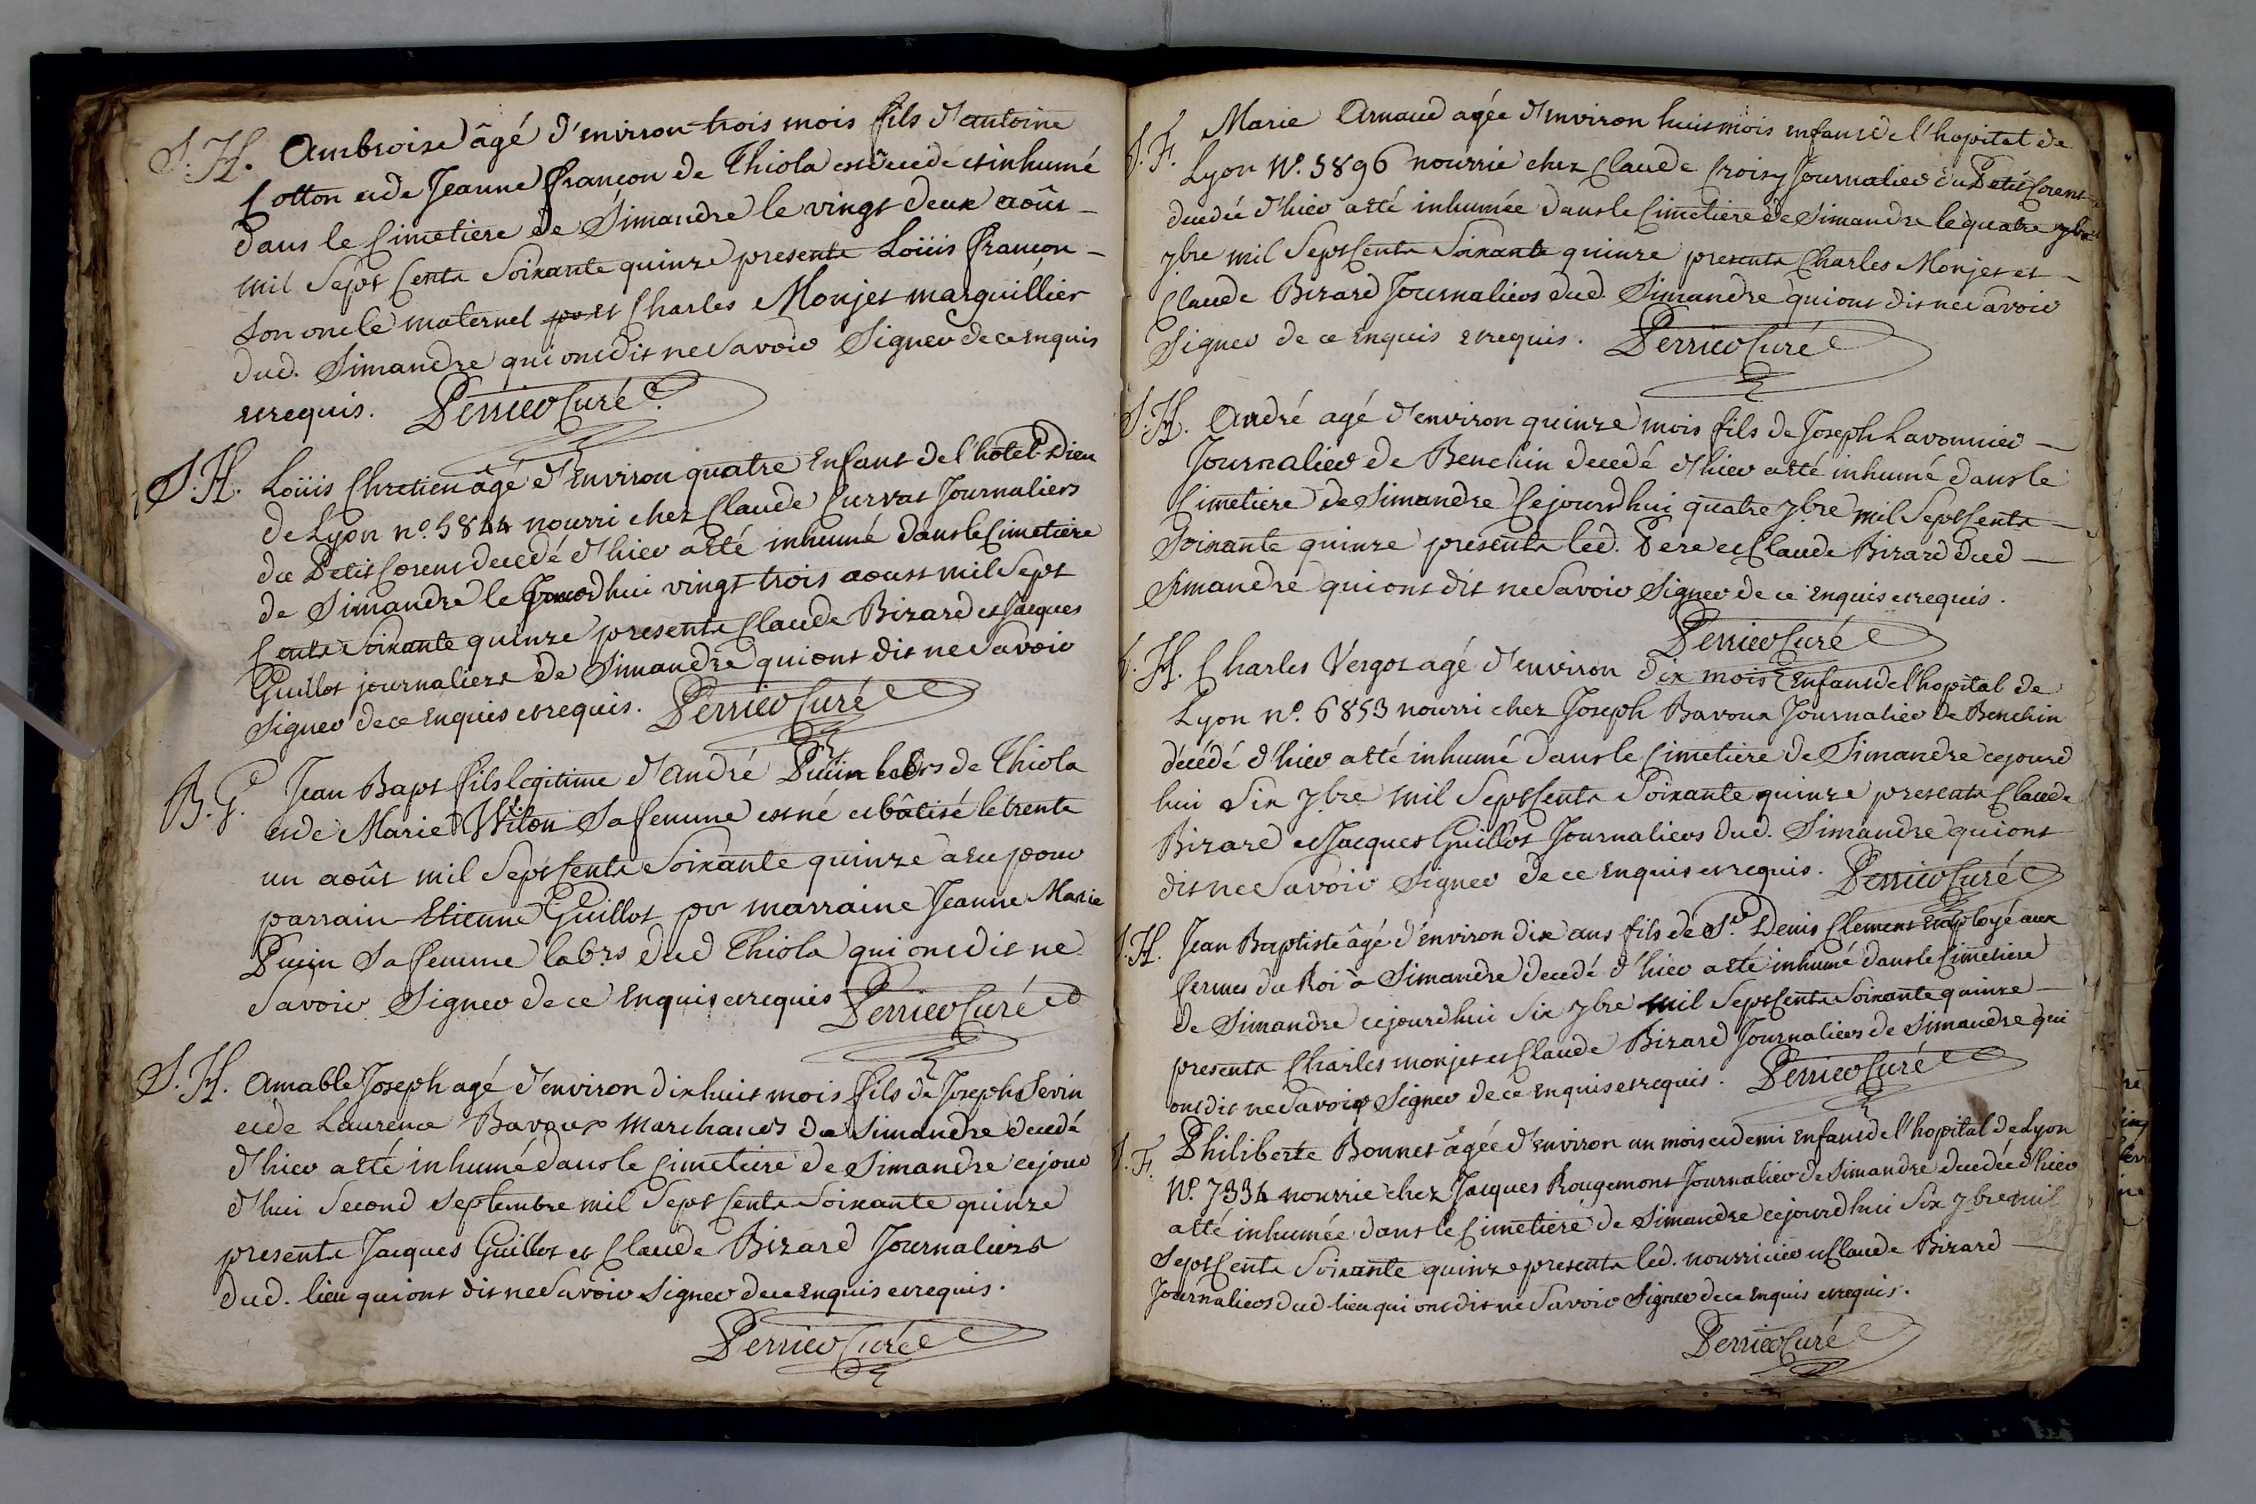 S. H. Ambroise âgé d'environ trois mois fils d'antoine
Cotton et de Jeanne françon de Thiola est decedé et inhumé
dans le Cimetiere de Simandre le vingt deux août
mil Sept Cents Soixante quinze presents Loüis françon
Son oncle maternel et Charles Monjet marguillier
dud. Simandre qui ont dit ne Savoir Signer de ce enquis
et requis. Perrier Curé
S. H. Loüis Chretien âgé d'Environ quatre Enfant de l'hotel-Dieu
de Lyon n.º 5844 nourri chez Claude Curvat Journaliers
du Petit Corent decedé d'hier a eté inhumé dans le Cimetiere
de Simandre le Jourdhui vingt trois aoust mil Sept
Cents Soixante quinze presents Claude Bizard et Jacques
Guillot journaliers de Simandre qui ont dit ne Savoir
Signer de ce Enquis et requis. Perrier Curé
B. G. Jean Bapt fils legitime d'André Puvin labrs de Thiola
et de Marie Sa femme est né et bâtisé le trente
un août mil Sept Cents Soixante quinze a eu pour
parrain Etienne Guillot pr marraine Jeanne Marie
Puvin Sa femme labrs dud Thiola qui ont dit ne
Savoir Signer de ce Enquis et requis Perrier Curé
S. H. Amable Joseph agé d'environ dix huit mois fils de Joseph Sevin
et de Laurence Bavoux Marchands de Simandre decedé
d'hier a eté inhumé dans le Cimetiere de Simandre ce jour
d'hui Second Septembre mil Sept Cents Soixante quinze
presents Jacques Guillot et Claude Bizard Journaliers
dud. lieu qui ont dit ne Savoir Signer de ce Enquis et requis.
Perrier Curé
S. F. Marie Arnaud agée d'environ huit mois enfant de l'hopital de
Lyon N.º 5896 nourrie chez Claude Croisy Journalier du Petit Corent
decedée d'hier a eté inhumée dans le Cimetiere de Simandre le quatre 7bre
7bre mil Sept Cents Soixante quinze presents Charles Monjet et
Claude Bizard Journaliers dud. Simandre qui ont dit ne Savoir
Signer de ce Enquis et requis. Perrier Curé
S. H. André agé d'environ quinze mois fils de Joseph Lavonnier
Journalier de Benchin decedé d'hier a eté inhumé dans le
Cimetiere de Simandre Ce jourdhui quatre 7bre mil Sept Cents
Soixante quinze presents led. Pere et Claude Bizard dud
Simandre qui ont dit ne Savoir Signer de ce Enquis et requis.
Perrier Curé
S. H. Charles Vergot agé d'environ dix mois Enfant de l'hopital de
Lyon n.º 6853 nourri chez Joseph Bavoux Journalier de Benchin
décédé d'hier a eté inhumé dans le Cimetiere de Simandre ce jourd
hui Six 7bre mil Sept Cents Soixante quinze presents Claude
Bizard et Jacques Guillot Journaliers dud. Simandre qui ont
dit ne Savoir Signer de ce Enquis et requis. Perrier Curé
S. H. Jean Baptiste âgé d'environ dix ans fils de Sr. Denis Clement Employé aux
fermes du Roi à Simandre decedé d'hier a eté inhumé dans le Cimetiere
de Simandre ce jourdhui Six 7bre mil Sept Cents Soixante quinze
presents Charles monjet et Claude Bizard Journaliers de Simandre qui
ont dit ne Savoir Signer de ce Enquis et requis. Perrier Curé
S. F. Philiberte Bonnet agée d'Environ un mois et demi Enfant de l'hopital de Lyon
N.º 7334 nourrie chez Jacques Rougemont Journalier de Simandre decedée d'hier
a eté inhumée dans le Cimetiere de Simandre ce jourdhui Six 7bre mil
Sept Cents Soixante quinze presents led. nourricier et Claude Bizard
Journaliers dud lieu qui ont dit ne Savoir Signer de ce Enquis et requis.
Perrier Curé